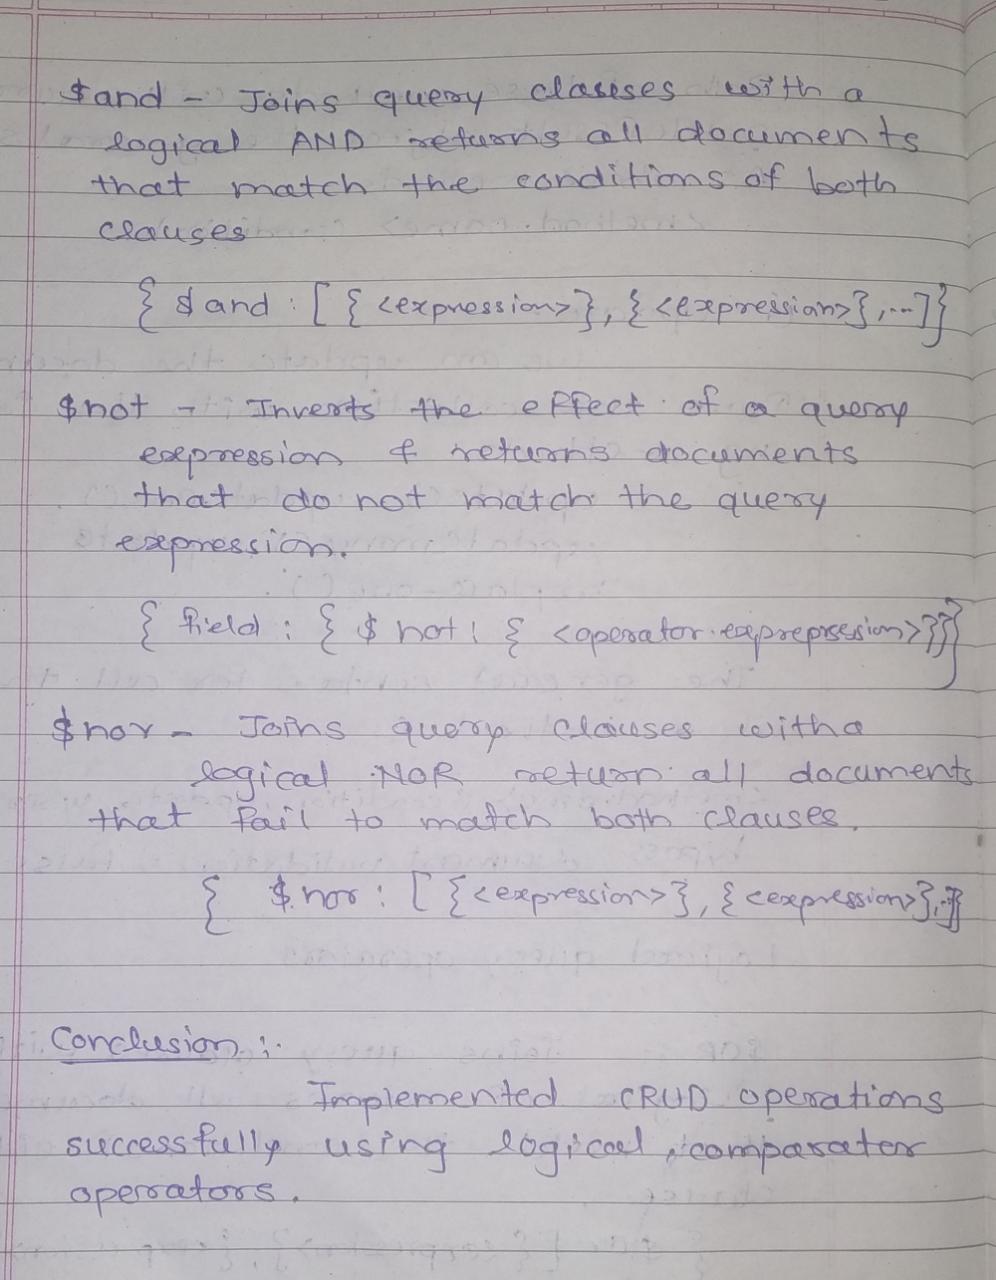 $and - Joins query clauses with a
logical AND returns all documents
that match the conditions of both
clauses
{ $and : [ { <expression> }, { <expression> } , ... ] }
$not - Inverts the effect of a query
expression & returns documents
that do not match the query
expression.
{ field : { $not : { <operator expreprssesion> } } }
$nor - Joins query clauses with a
logical NOR return all documents
that fail to match both clauses.
{ $nor : [ { <expression> }, { <expression> }, .. ] }
Conclusion :
Implemented CRUD operations
successfully using logical , comparator
operators .